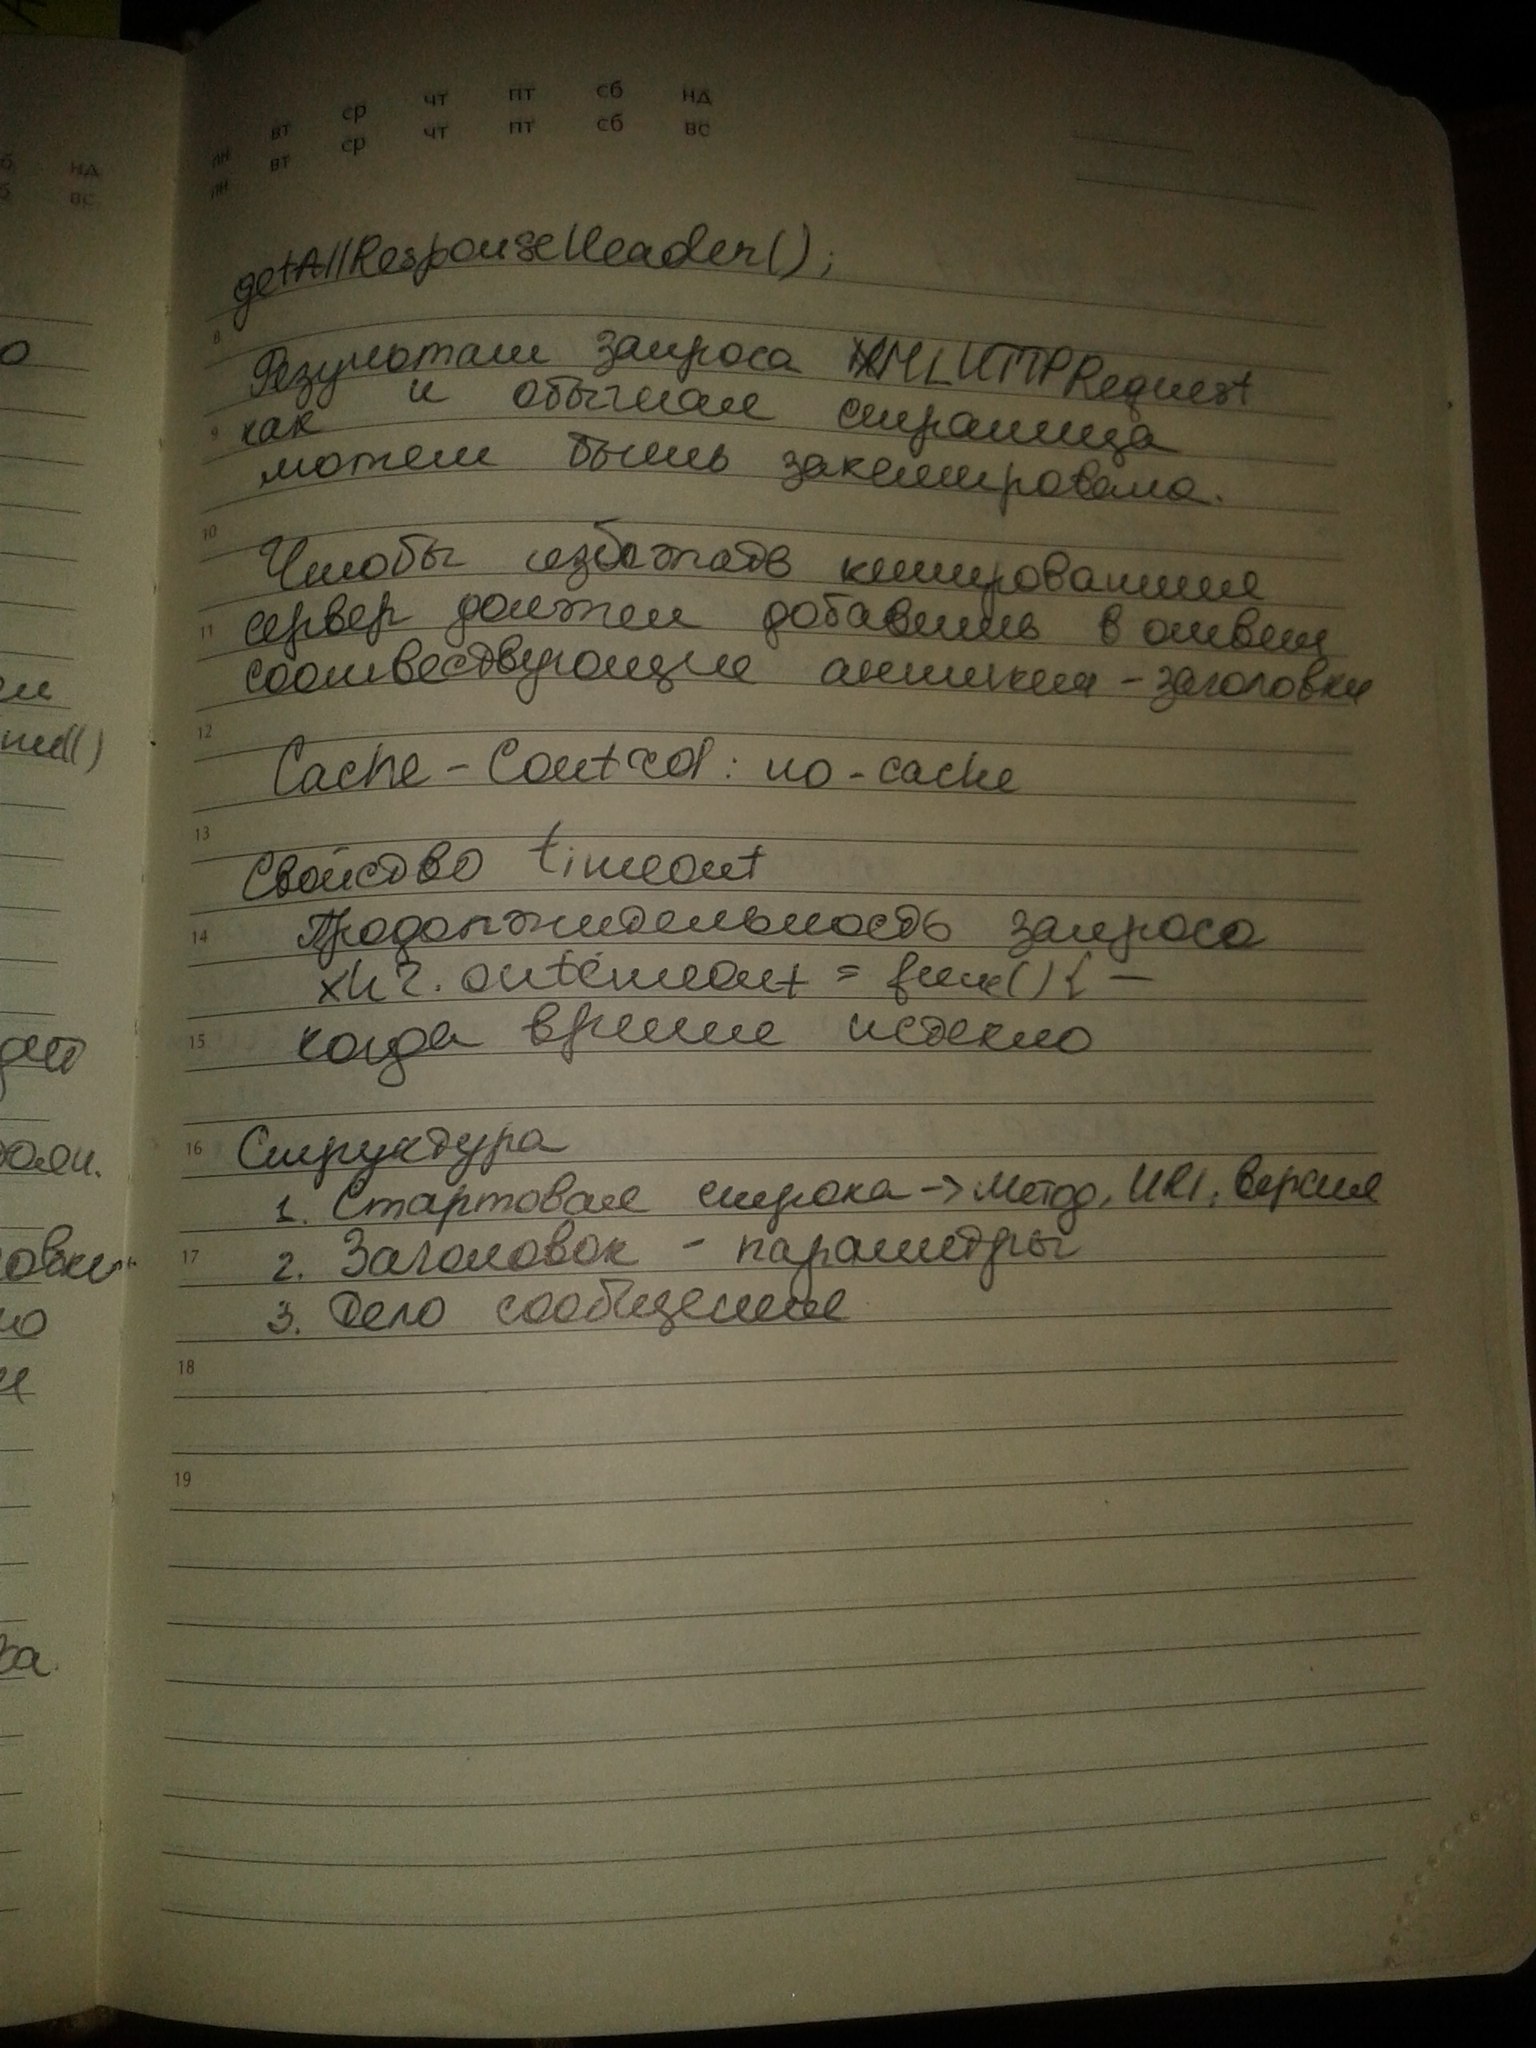 ср чт пт сб нд
пн вт ср чт пт сб вс
пн вт
б нд
б вс
getAllResponseHeader();
8
Результат запроса XMLHTTPRequest
9 как и обычная страница
может быть закеширована.
10
Чтобы избежать кеширования
11 сервер должен добавить в ответ
соотвествующие антикеш-заголовки
12
Cache-Control: no-cache
13
Свойство timeout
14 Продолжительность запроса
xhr.ontimeout = func(){ —
15 когда время истекло
16 Структура
1. Стартовая строка -> метод, URI, версия
17 2. Заголовок - параметры
3. Тело сообщения
18
19